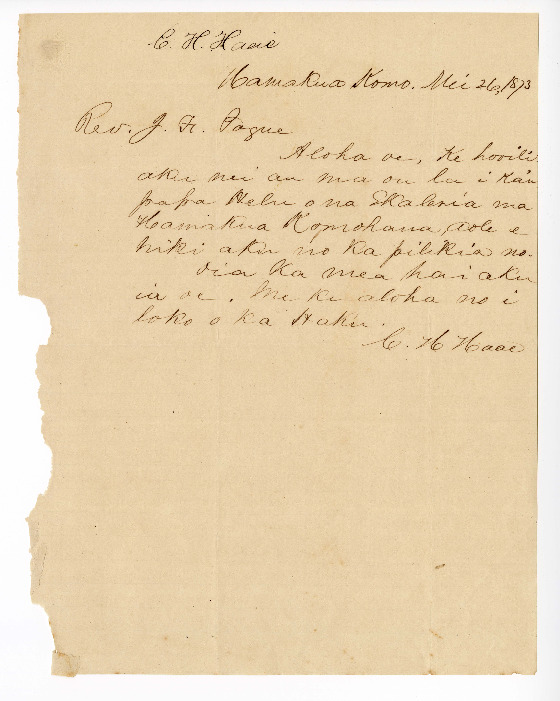 C. H. Haae
Hamakua Komo. Mei 26, 1873
Rev. J. F. Pogue
Aloha oe, Ke hooili
aku nei au ma ou la i Ka'u
papa Helu o na Ekalesia ma
Hamakua Komohana, aole e
hiki aku no ka pilikia no.
Oia Ka mea hai aku
ia oe. Me ke aloha no i
loko o ka Haku.
C. H Haae